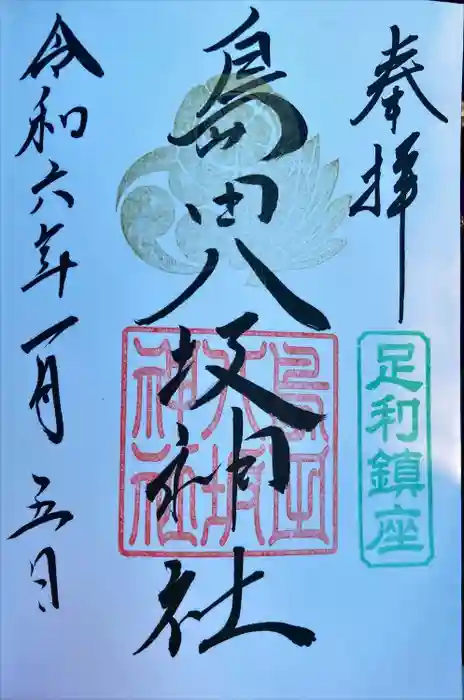 奉拝
足利鎮座
島田八坂神社
島田
八坂
神社
令和六年一月五日